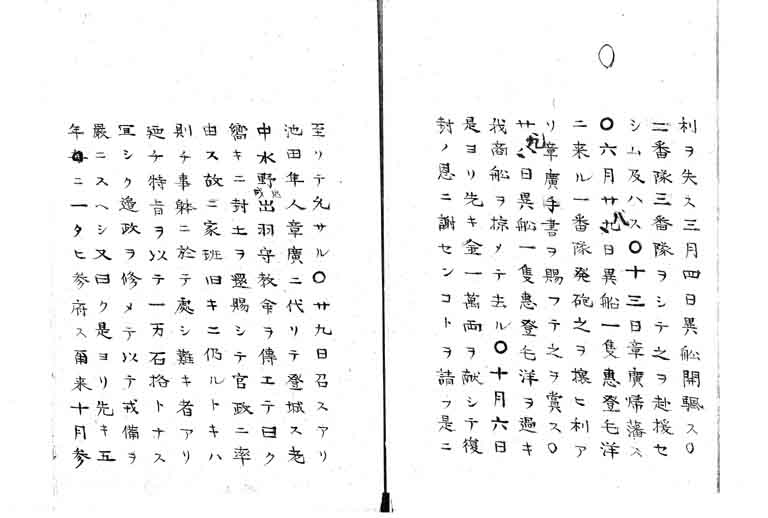 利ヲ失ス三月四日異舩開颿ス〇
二番隊三番隊ヲシテ之ヲ赴援セ
シム及ハス〇十三日章廣帰藩ス
〇六月廿八日異船一隻惠登毛洋
ニ来ル一番隊発砲之ヲ攘ヒ利ア
リ章廣手書ヲ賜フテ之ヲ賞ス〇
廿九日異船一隻惠登毛洋ヲ過キ
我商船ヲ掠メテ去ル〇十月六日
是ヨリ先キ金一萬両ヲ献シテ復
封ノ恩ニ謝センコトヲ請フ是ニ
至リテ允サル〇廿九日召スアリ
池田隼人章廣ニ代リテ登城ス老
中水野出羽守忠成教命ヲ傳エテ曰ク
嚮キニ封土ヲ還賜シテ官政ニ率
由ス故ニ家班旧キニ仍ルトキハ
則チ事躰ニ於テ處シ難キ者アリ
廼チ特旨ヲ以テ一万石格トナス
冝シク邊政ヲ修メテ以テ戒備ヲ
嚴ニスヘシ又曰ク是ヨリ先キ五
年ニ一タヒ参府ス爾来十月参